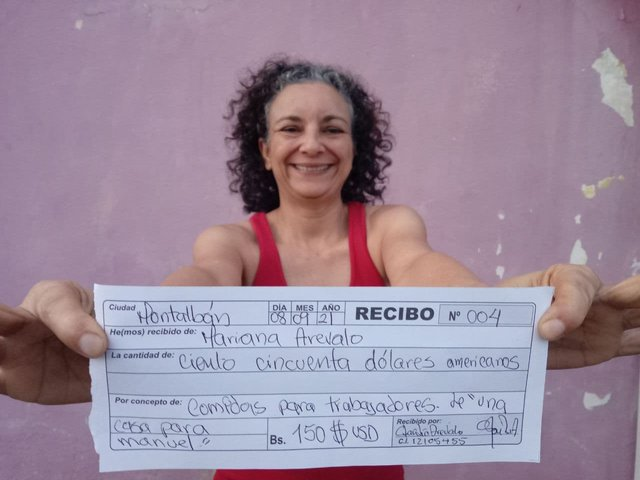 Ciudad Montalbán DÍA MES AÑO 08 09 21 RECIBO Nº 004
He(mos) recibido de: Mariana Arevalo
La cantidad de: Ciento cincuenta dólares americanos
Por concepto de: Comidas para trabajadores. de "una
casa para
manuel"
Bs. 150 $ USD
Recibido por:
Arevalo
C.I. 12105455